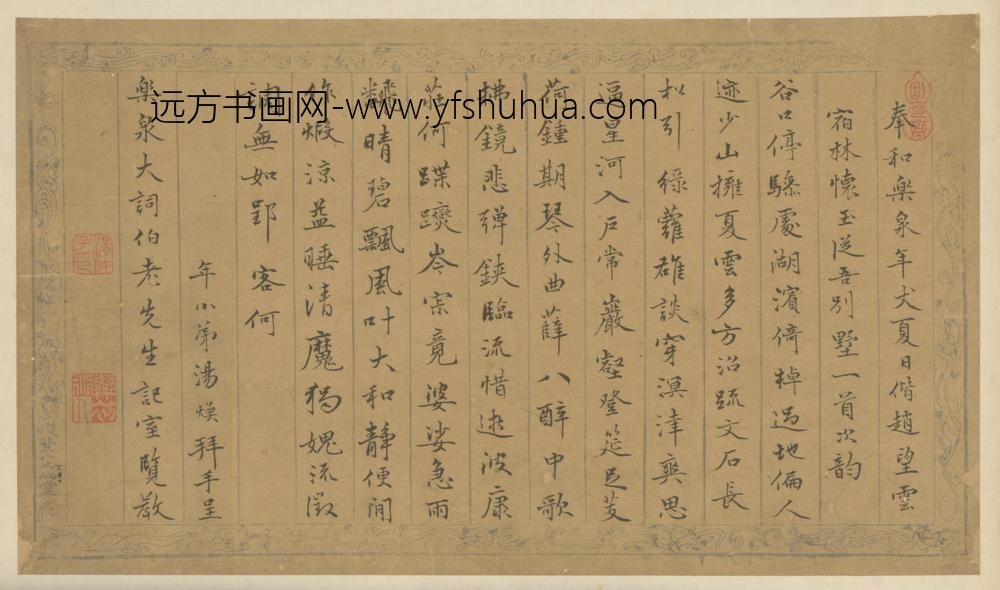 奉和樂泉年丈夏日偕趙望雲
宿林懷玉從吾別墅一首次韵
谷口停驂處湖濱倚棹過地偏人
迹少山擁夏雲多方沼疏文石長
松引綠蘿雄談穿溟涬爽思
逼星河入戶常巖壑登筵足芰
荷鍾期琴外曲薛八醉中歌
拂鏡悲彈鋏臨流惜逝波康
莊何蹀躞岑寂竟婆娑急雨
晴碧飄風叶大和靜便閒
涼益睡清魔獨媿流徵
無如郢客何
年小弟湯煥拜手呈
樂泉大詞伯老先生記室覽教
远方书画网-www.yfshuhua.com